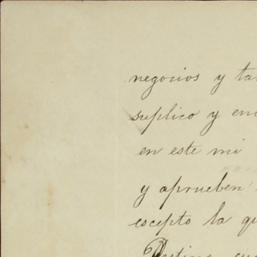 negocios y ta
suplico y en
en este mi
y aprueben
escepto la q